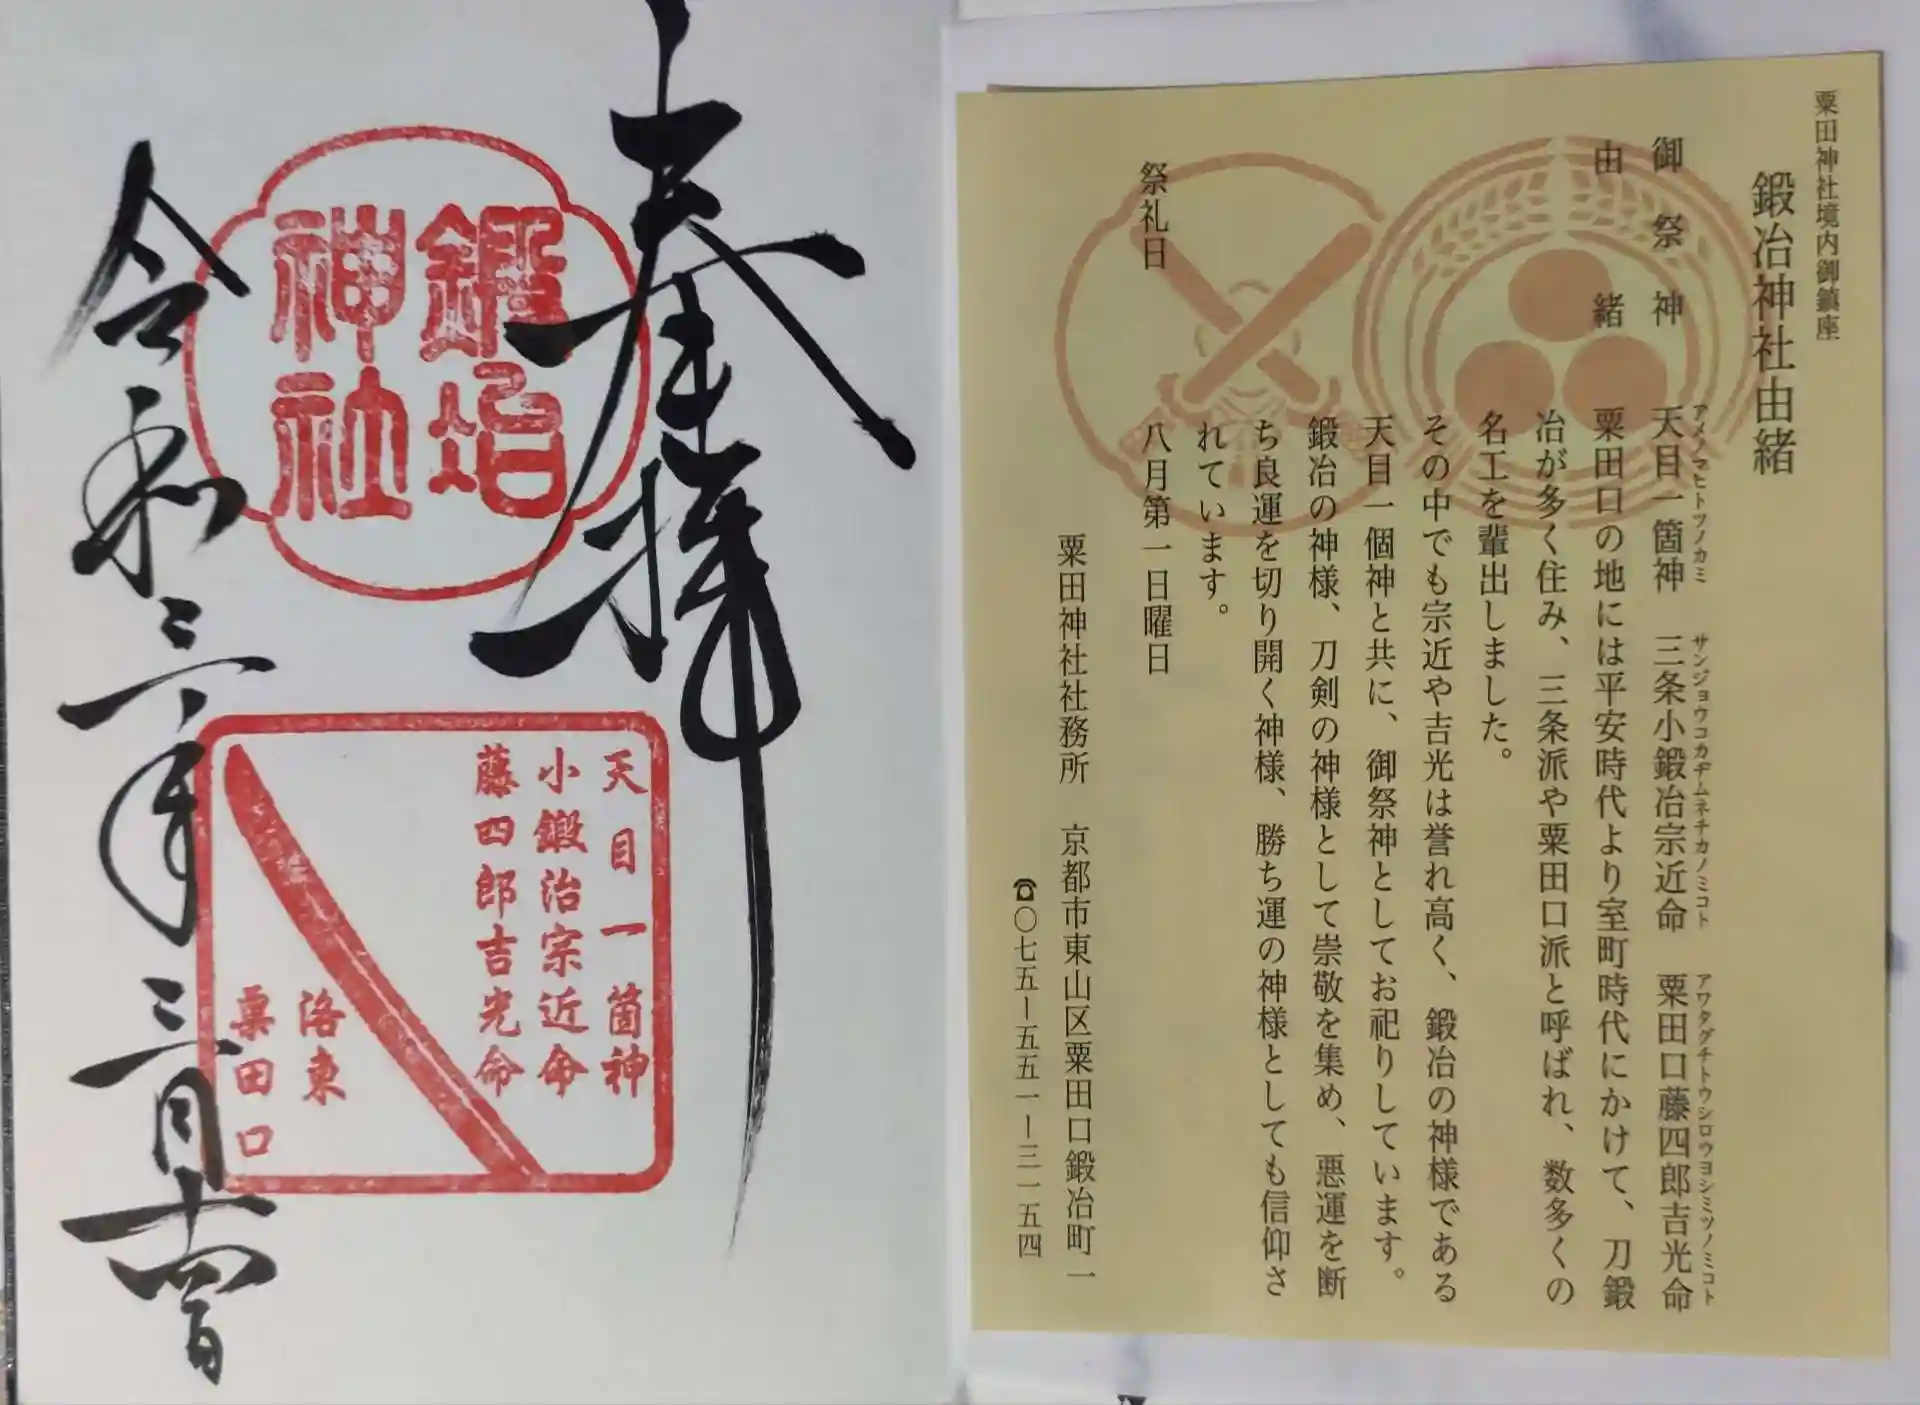 粟田神社境内御鎮座
鍛冶神社由緒
御祭神
アメノマヒトツノカミ サンジョウコカヂムネチカノミコト アワタグチトウシロウヨシミツノミコト
天目一箇神 三条小鍛冶宗近命 粟田口藤四郎吉光命
由緒
粟田口の地には平安時代より室町時代にかけて、刀鍛
冶が多く住み、三条派や粟田口派と呼ばれ、数多くの
名工を輩出しました。
その中でも宗近や吉光は誉れ高く、鍛冶の神様である
天目一個神と共に、御祭神としてお祀りしています。
鍛冶の神様、刀剣の神様として崇敬を集め、悪運を断
ち良運を切り開く神様、勝ち運の神様としても信仰さ
れています。
祭礼日
八月第一日曜日
粟田神社社務所 京都市東山区粟田口鍛冶町一
☎〇七五ー五五一ー三一五四
奉拝
鍛冶
神社
天目一箇神
小鍛冶宗近命
藤四郎吉光命
洛東
粟田口
令和三年三月十四日